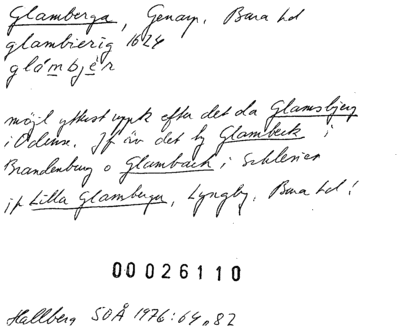 Glamberga, Genarp, Bara hd
glambierig 1624
glámbjér
möjl ytterst uppk efter det da Glamsbjerg
i Odense. Jf äv det ty Glambeck i
Brandenburg o Glambach i Schlesien
jf Lilla Glamberga, Lyngby, Bara hd!
00026110
Hallberg SOÅ 1976: 64, 82